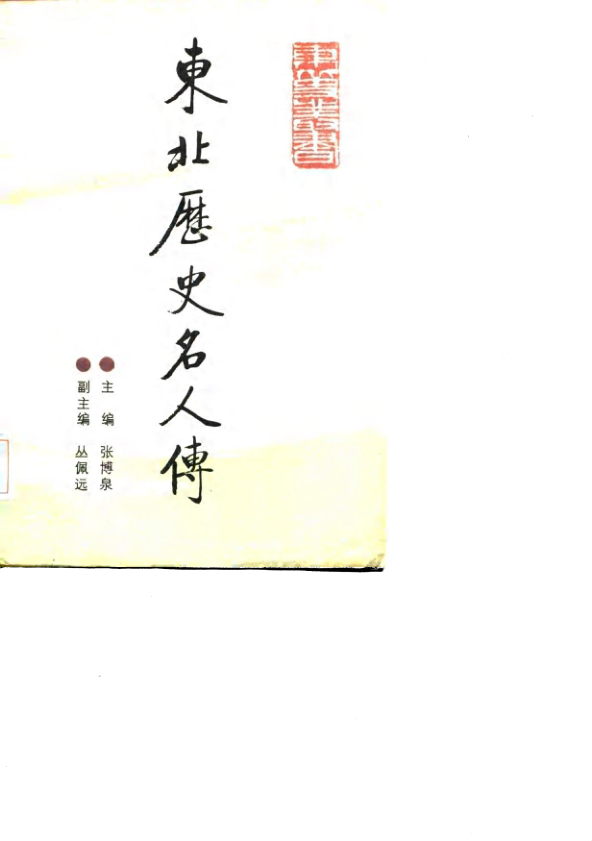 东北丛书
東北歷史名人傳
主 编 张博泉
副主编 丛佩远